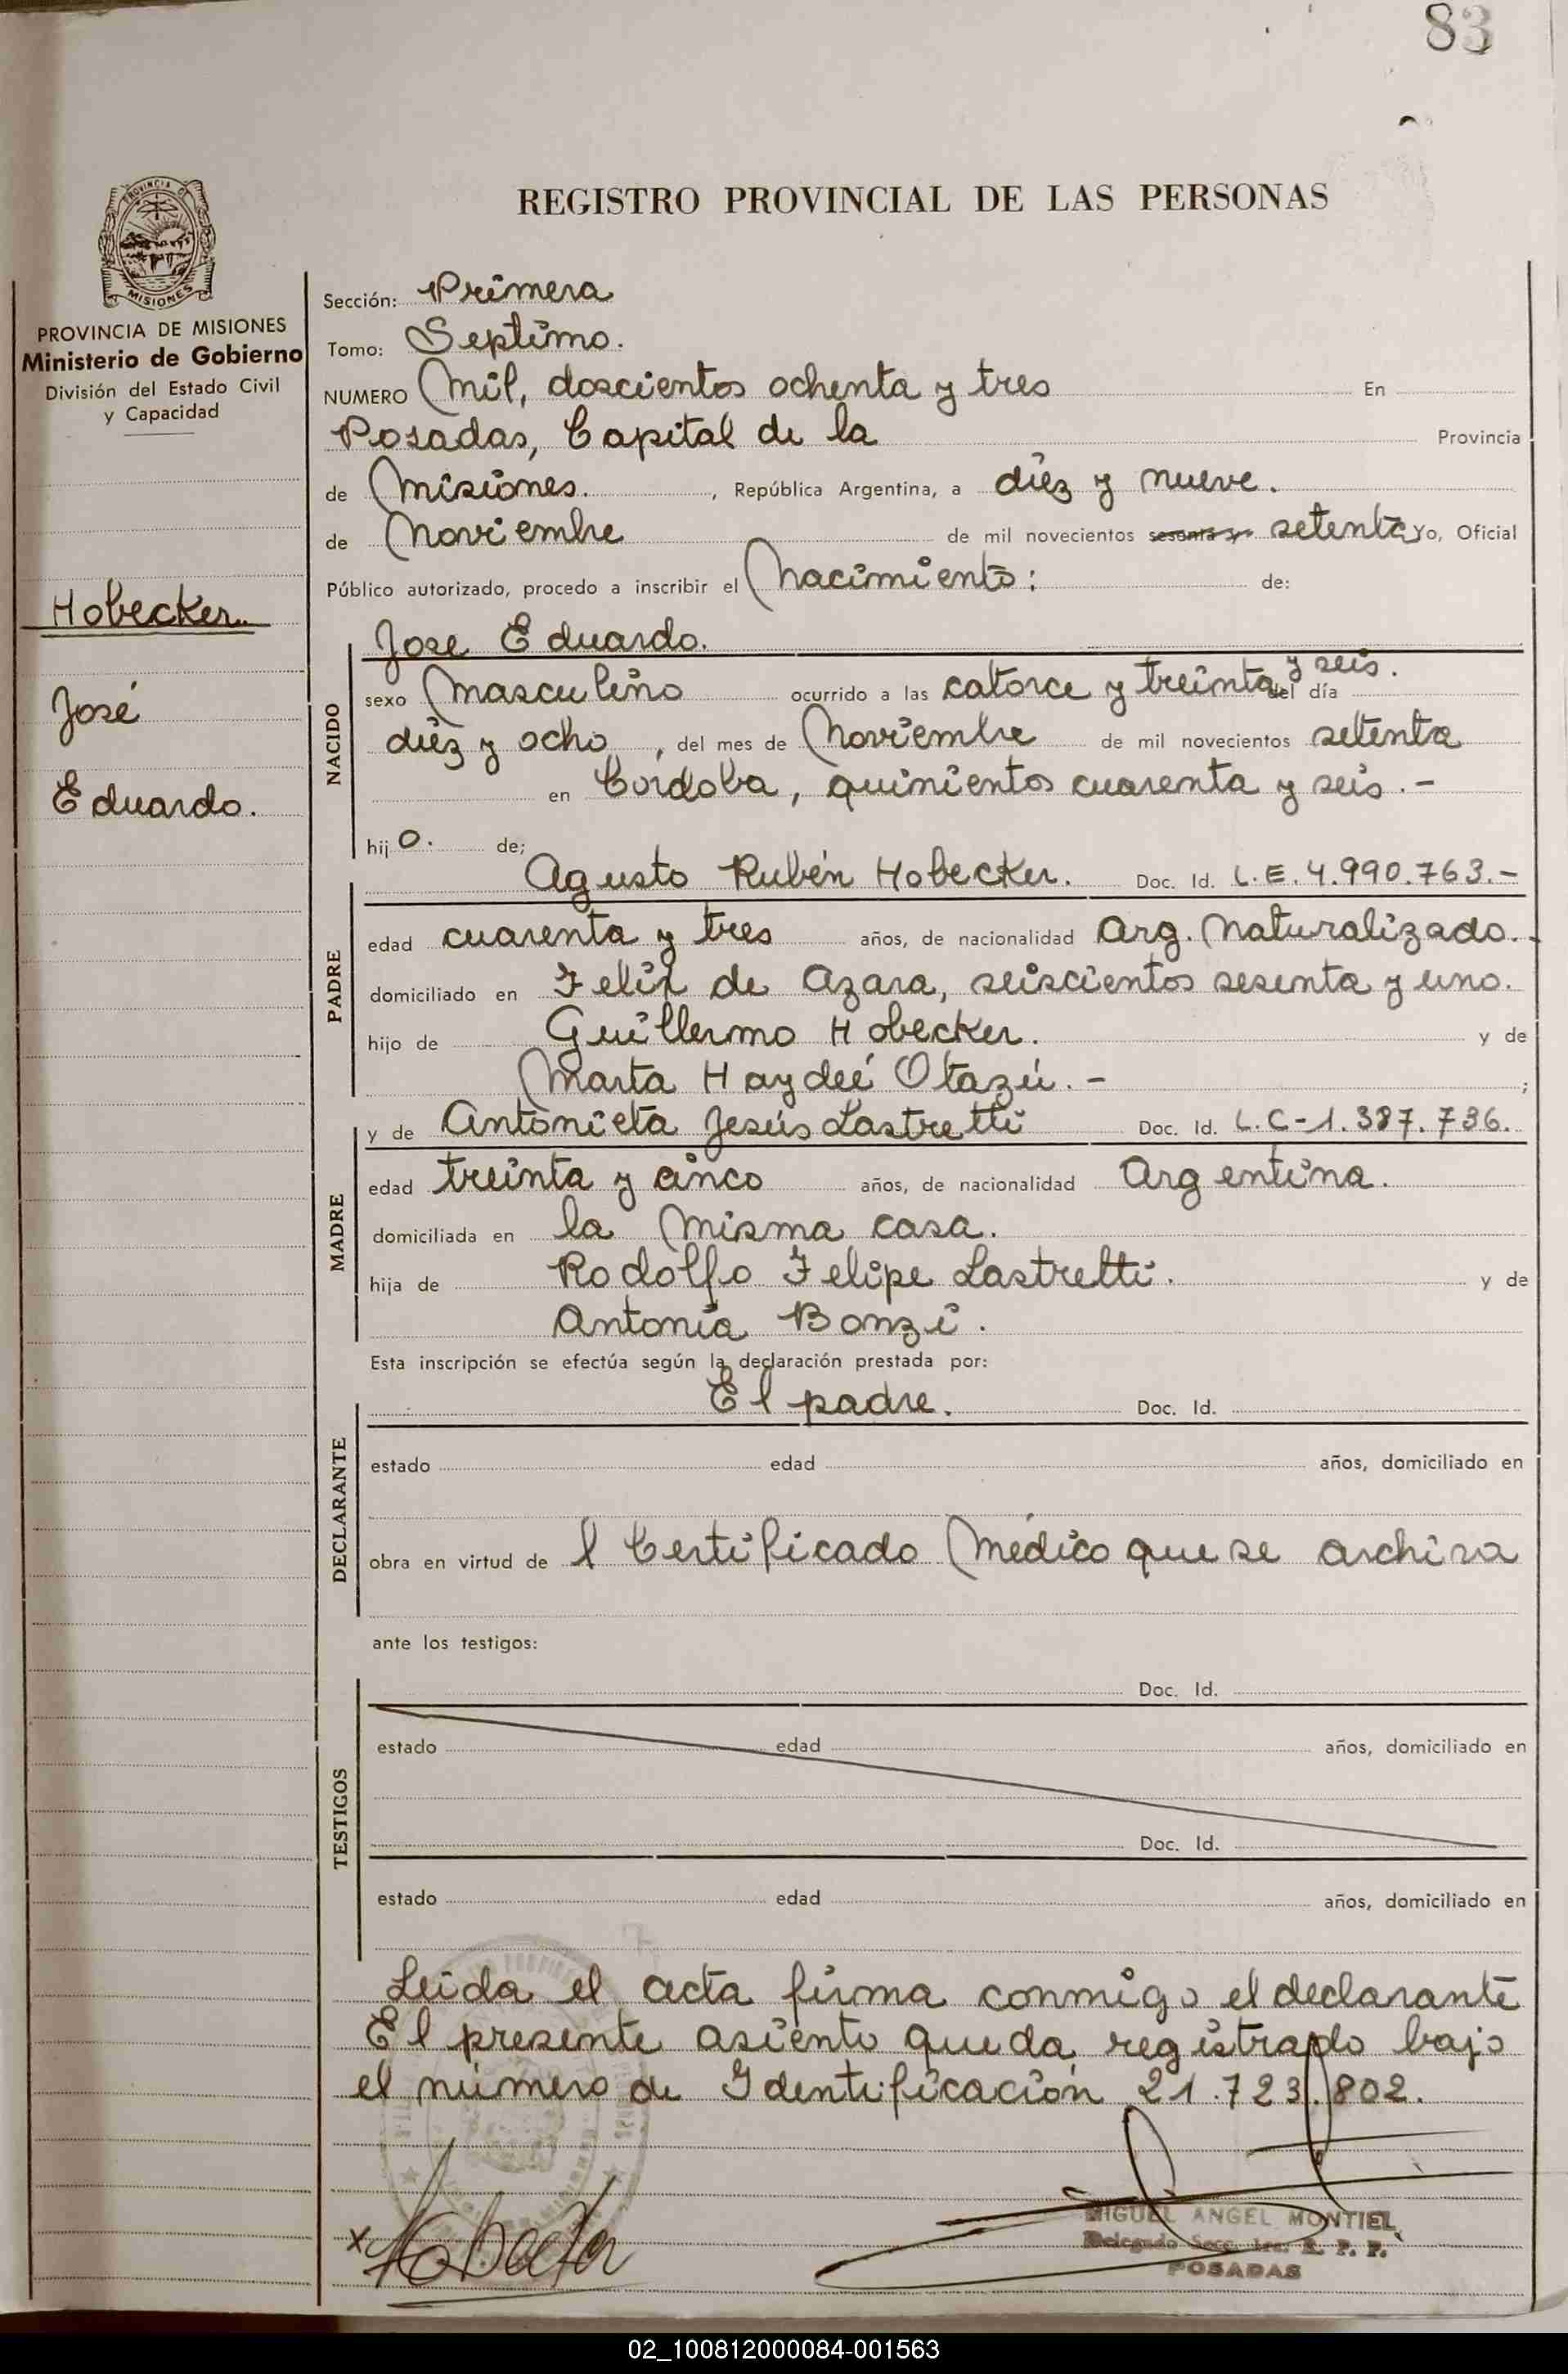 83
REGISTRO PROVINCIAL DE LAS PERSONAS
PROVINCIA DE
MISIONES
PROVINCIA DE MISIONES
Ministerio de Gobierno
División del Estado Civil
y Capacidad
Hobecker.
José
Eduardo.
Sección: Primera
Tomo: Septimo.
NUMERO Mil, doscientos ochenta y tres En
Posadas, Capital de la Provincia
de Misiones. , República Argentina, a diéz y nueve.
de Noviembre de mil novecientos sesenta y setenta Yo, Oficial
Público autorizado, procedo a inscribir el Nacimiento: de:
Jose Eduardo.
NACIDO
sexo Masculino ocurrido a las catorce y treinta y seis. del día
diéz y ocho , del mes de Noviembre de mil novecientos setenta
en Córdoba, quinientos cuarenta y seis. -
hij o. de;
Agusto Rubén Hobecker. Doc. Id. L.E. 4.990.763.-
PADRE
edad cuarenta y tres años, de nacionalidad Arg. Naturalizado.
domiciliado en Felix de Azara, seiscientos sesenta y uno.
hijo de Guillermo Hobecker. y de
Marta Haydeé Otazú. - ;
y de Antonieta Jesús Lastretti Doc. Id. L.C-1.387.736.
MADRE
edad treinta y cinco años, de nacionalidad Argentina.
domiciliada en la Misma casa.
hija de Rodolfo Felipe Lastretti. y de
Antonia Bonzi.
Esta inscripción se efectúa según la declaración prestada por:
El padre. Doc. Id.
DECLARANTE
estado edad años, domiciliado en
obra en virtud de l Certificado Médico que se archiva
ante los testigos:
Doc. Id.
TESTIGOS
estado edad años, domiciliado en
Doc. Id.
estado edad años, domiciliado en
Leida el acta firma conmigo el declarante
El presente asiento queda registrado bajo
el número de Identificación 21.723.802.
x Hobecker
MIGUEL ANGEL MONTIEL
Delegado Secc. 1ra. R. P. P.
POSADAS
02_100812000084-001563